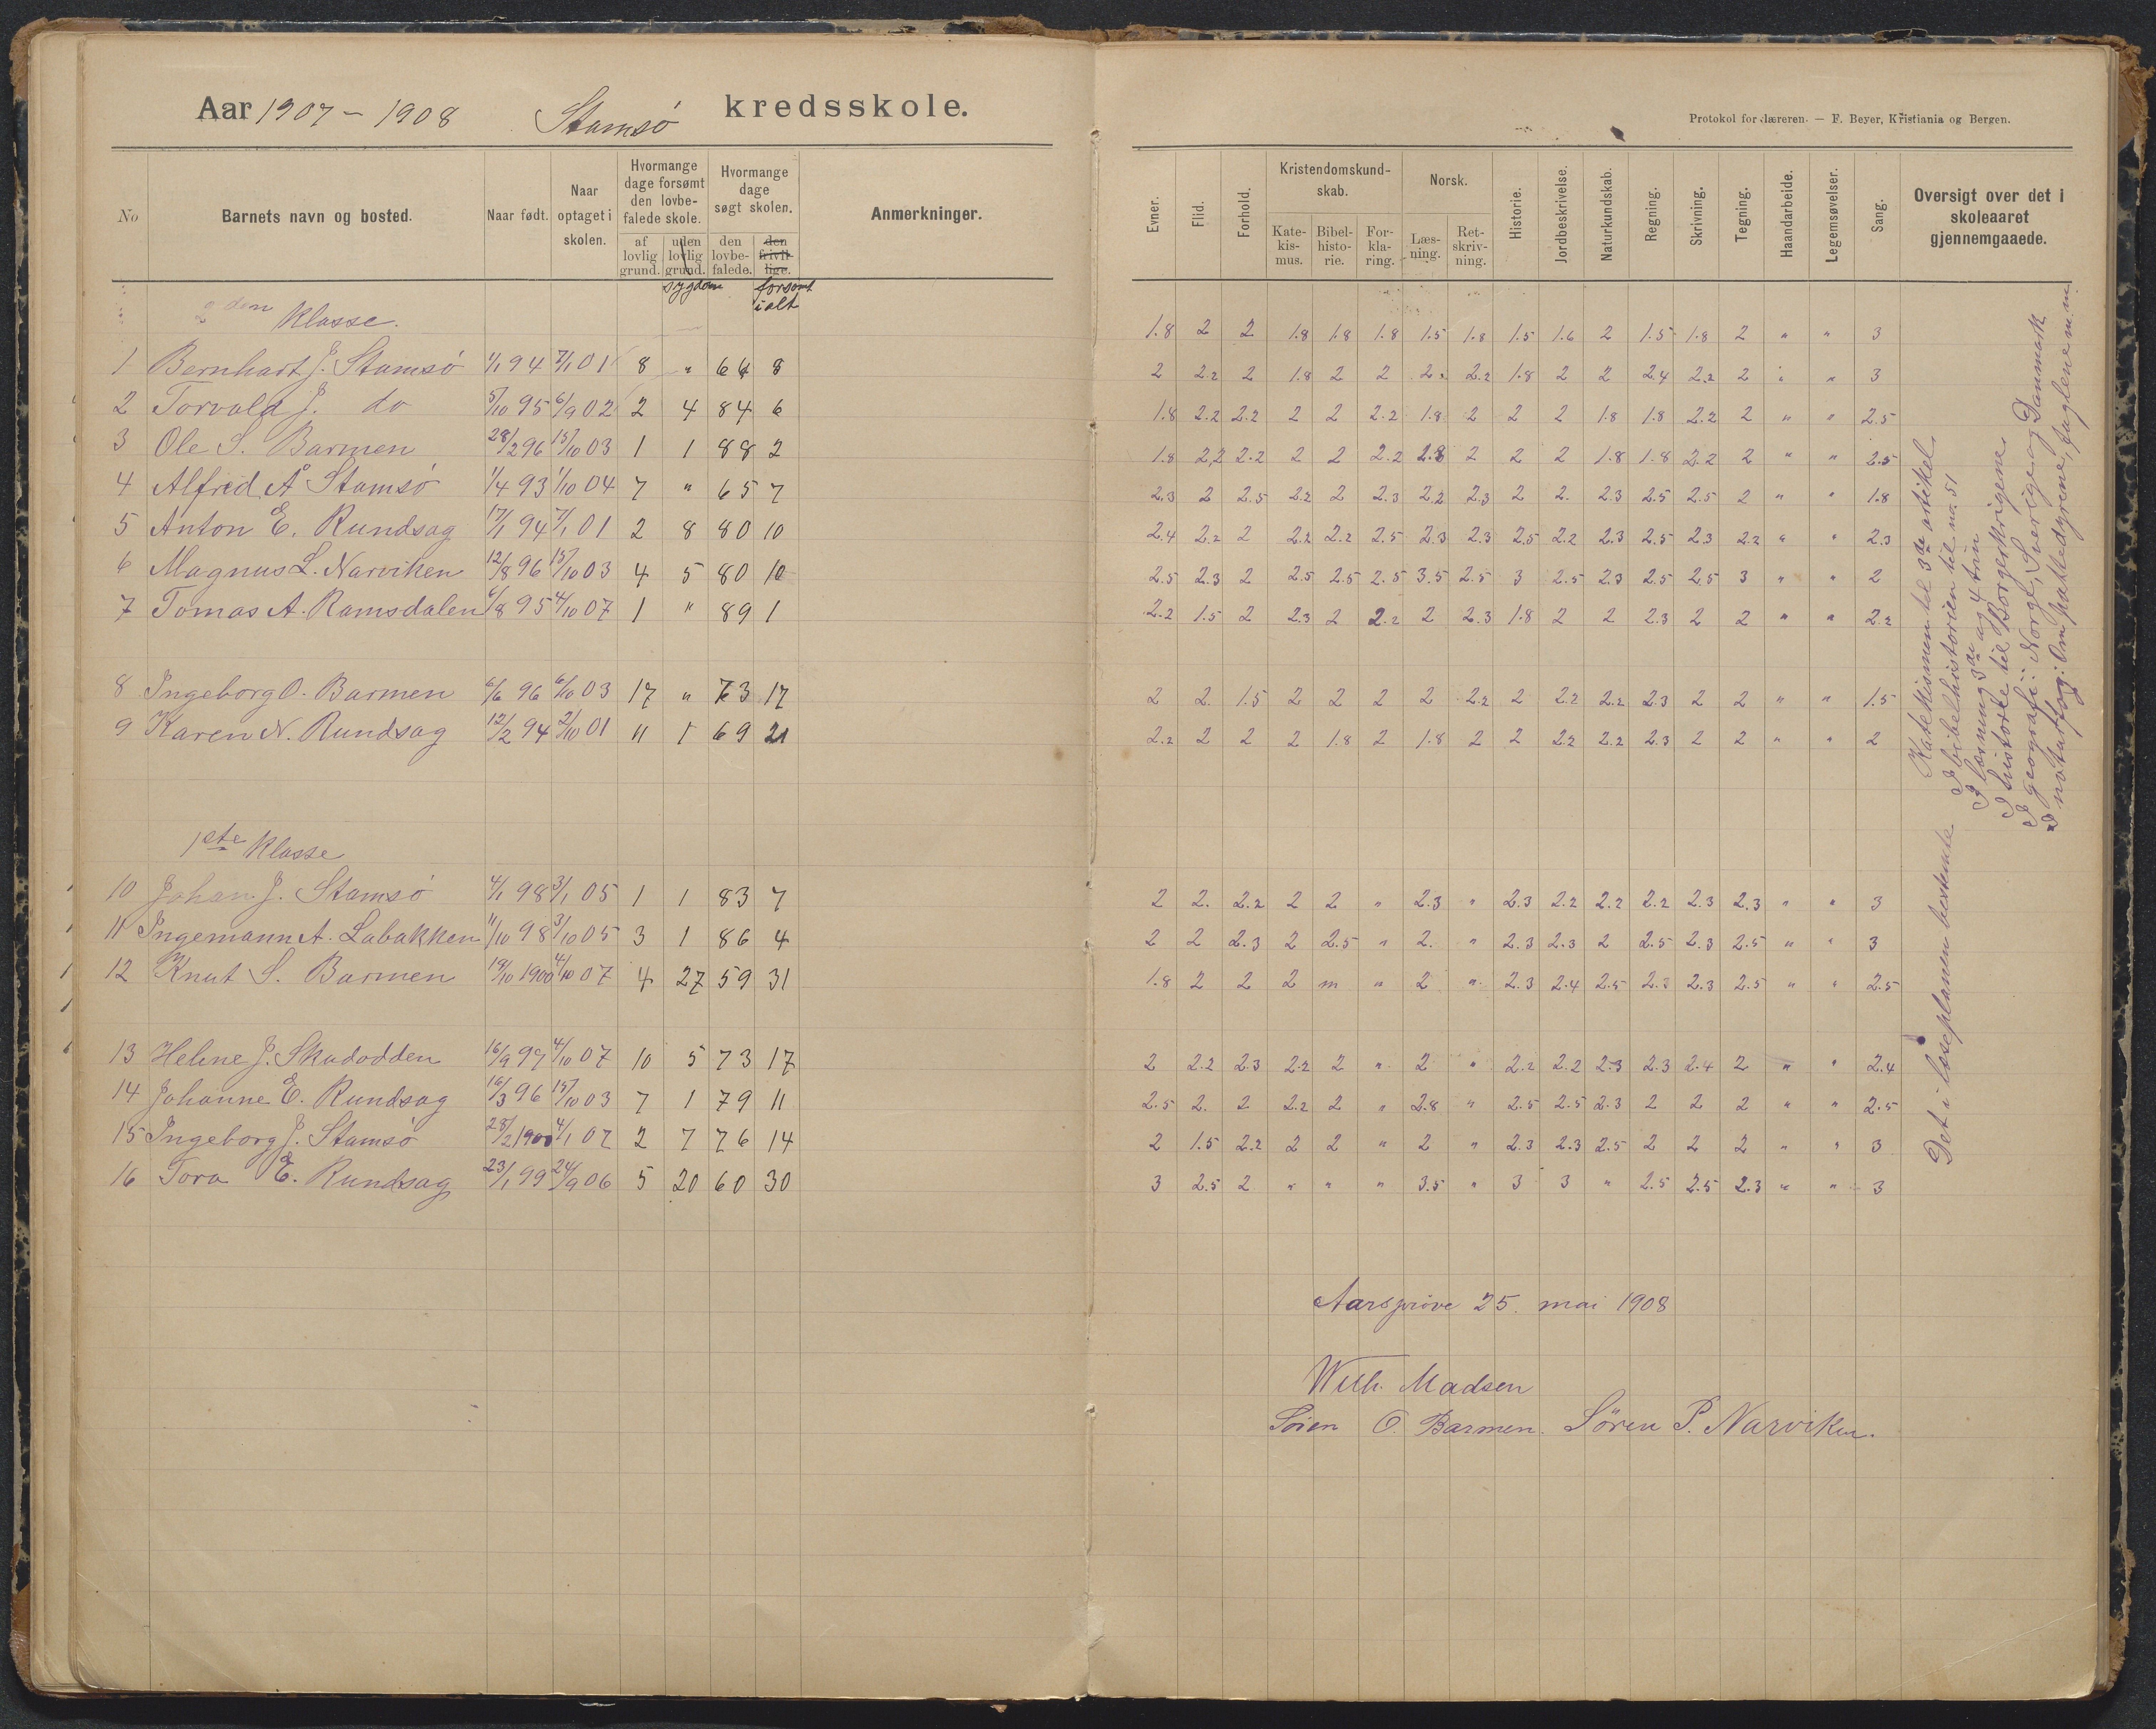 Aar 1907 – 1908 Stamsø kredsskole.
No Barnets navn og bosted. Naar født. Naar optaget i skolen. Hvormange dage forsømt den lovbefalede skole. Hvormange dage søgt skolen. Anmerkninger.
af lovlig grund. uden lovlig grund. den lovbefalede. den frivillige.
sygdom forsømt ialt
2den Klasse.
1 Bernhart J. Stamsö 1/1 94 7/1 01 8 " 64 8
2 Torvald J. do 5/10 95 6/9 02 2 4 84 6
3 Ole S. Barmen 28/2 96 15/10 03 1 1 88 2
4 Alfred A Stamsö 1/4 93 1/10 04 7 " 65 7
5 Anton E. Rundsag 17/1 94 7/1 01 2 8 80 10
6 Magnus L. Narviken 12/8 96 15/10 03 4 5 80 10
7 Tomas A. Ramsdalen 6/8 95 4/10 07 1 " 89 1
8 Ingeborg O. Barmen 6/6 96 6/10 03 17 " 73 17
9 Karen N. Rundsag 12/2 94 2/10 01 11 1 69 21
1ste Klasse
10 Johan J. Stamsö 4/1 98 3/1 05 1 1 83 7
11 Ingemann A. Labakken 11/10 98 3/10 05 3 1 86 4
12 Knut S. Barmen 19/10 1900 4/10 07 4 27 59 31
13 Helene J. Skadodden 16/9 97 4/10 07 10 5 73 17
14 Johanne E. Rundsag 16/3 96 15/10 03 7 1 79 11
15 Ingeborg J. Stamsö 28/2 1900 4/1 07 2 7 76 14
16 Tora E. Rundsag 23/1 99 24/9 06 5 20 60 30
Protokol for læreren. — F. Beyer, Kristiania og Bergen.
Evner. Flid. Forhold. Kristendomskundskab. Norsk. Historie. Jordbeskrivelse. Naturkundskab. Regning. Skrivning. Tegning. Haandarbeide. Legemsøvelser. Sang. Oversigt over det i skoleaaret gjennemgaaede.
Katekismus. Bibelhistorie. Forklaring. Læsning. Retskrivning.
1.8 2 2 1.8 1.8 1.8 1.5 1.8 1.5 1.6 2 1.5 1.8 2 " " 3
2 2.2 2 1.8 2 2 2.2 2.2 1.8 2 2 2.4 2.2 2 " " 3
1.8 2.2 2.2 2 2 2.2 1.8 2 2 2 1.8 1.8 2.2 2 " " 2.5
1.8 2.2 2.2 2 2 2.2 2.8 2 2 2 1.8 1.8 2.2 2 " " 2.5
2.3 2 2.5 2.2 2 2.3 2.2 2.3 2 2. 2.3 2.5 2.5 2 " " 1.8
2.4 2.2 2 2.2 2.2 2.5 2.3 2.3 2.5 2.2 2.3 2.5 2.3 2.2 " " 2.3
2.5 2.3 2 2.5 2.5 2.5 3.5 2.5 3 2.5 2.3 2.5 2.5 3 " " 2
2.2 1.5 2 2.3 2 2.2 2 2.3 1.8 2 2 2.3 2 2 " " 2.2
2 2. 1.5 2 2 2 2 2.2 2 2.2 2.2 2.3 2 2 " " 1.5
2.2 2 2 2 1.8 2 1.8 2 2 2.2 2.2 2.3 2 2 " " 2
2 2. 2.2 2 2 " 2.3 " 2.3 2.2 2.2 2.2 2.3 2.3 " " 3
2 2 2.3 2 2.5 " 2. " 2.3 2.3 2 2.5 2.3 2.5 " " 3
1.8 2 2 2 m " 2 " 2.3 2.4 2.5 2.3 2.3 2.5 " " 2.5
2 2.2 2.3 2.2 2 " 2 " 2.2 2.2 2.3 2.3 2.4 2 " " 2.4
2.5 2. 2 2.2 2 " 2.8 " 2.5 2.5 2.3 2 2 2 " " 2.5
2 1.5 2.2 2 2 " 2 " 2.3 2.3 2.5 2 2 2 " " 3
3 2.5 2 " " " 3.5 " 3 3 " 2.5 2.5 2.3 " " 3
Katekismen til 3de artikel
I bibelhistorien til no. 51
I læsning 3de og 4 trin
I historie til Borgerkrigene
I geografi: Norge, Sverige og Danmark
I naturfag: Om pattedyrene, fuglene m.m.
Det i læseplanen bestemte
Aarsprøve 25. mai 1908
Wilh. Madsen
Søren O. Barmen. Søren P. Narviken.